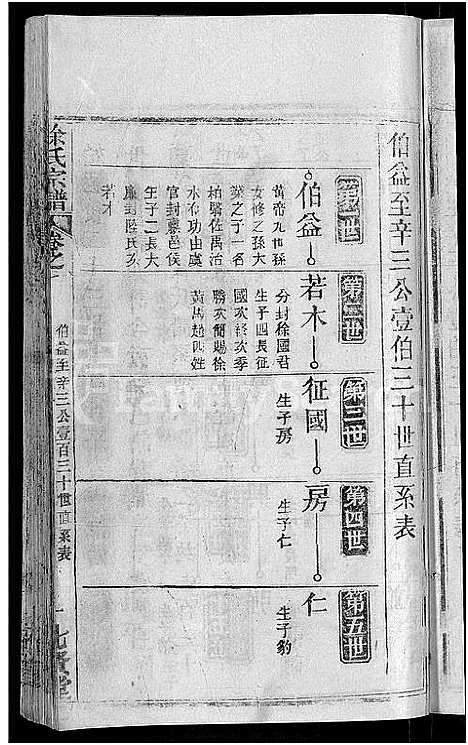 伯益至辛三公壹伯三十世直系表
第一世
伯益
黃帝九世孫
女修之孫大
業之子一名
柏翳佐禹治
水有功由虞
官封蔡邑侯
生子二長大
廉封
若木
第二世
若木
分封徐國君
生子四長征
國次終次季
勝次簡賜徐
黃馬趙四姓
第三世
征國
生子房
第四世
房
生子仁
第五世
仁
生子豹
徐氏宗譜
卷之
伯益至辛三公壹百三十世直系表